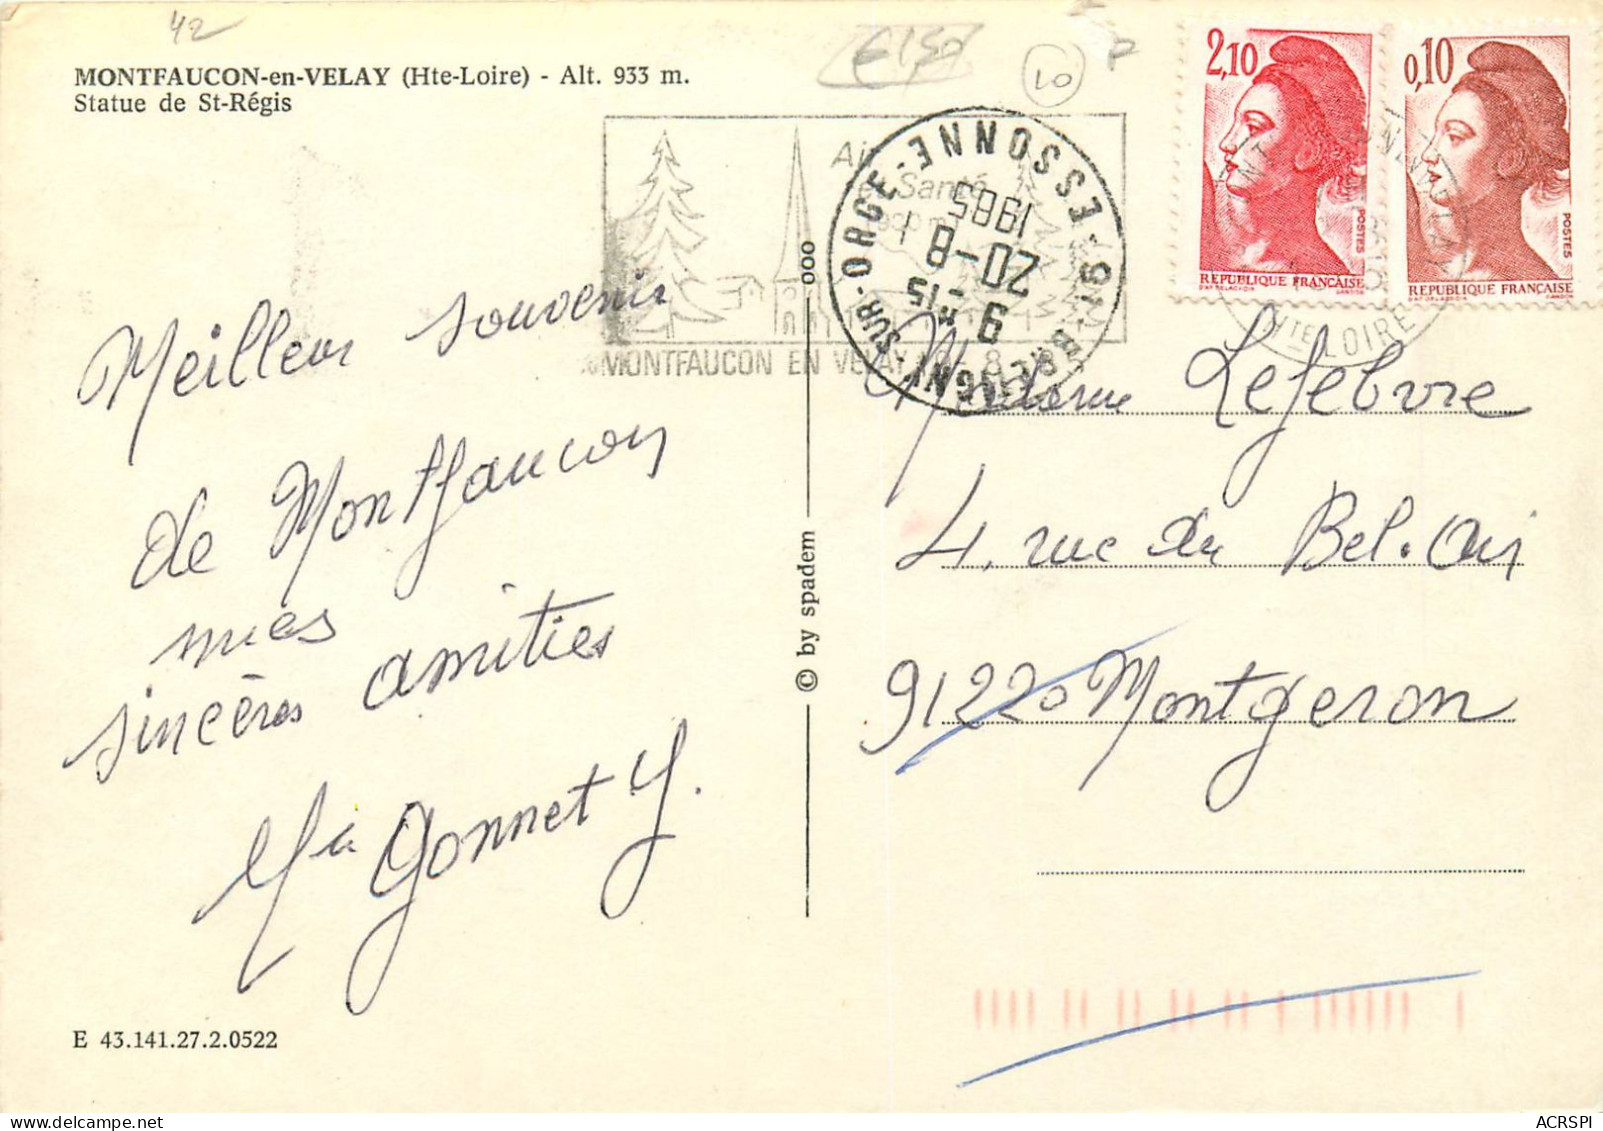 42
MONTFAUCON-en-VELAY (Hte-Loire) - Alt. 933 m.
Statue de St-Régis
Meilleur souvenir
de Montfaucon
mes
sincères amitiés
Gonnet Y.
E 43.141.27.2.0522
© by spadem
000
Santé
MONTFAUCON EN VELAY
91-BRETIGNY-SUR-ORGE-ESSONNE
9 H 15
20-8
1985
LO
2,10
POSTES
REPUBLIQUE FRANÇAISE
0,10
POSTES
REPUBLIQUE FRANÇAISE
HTE LOIRE
Madame Lefebvre
4, rue du Bel.Air
91220 Montgeron
ACRSPI